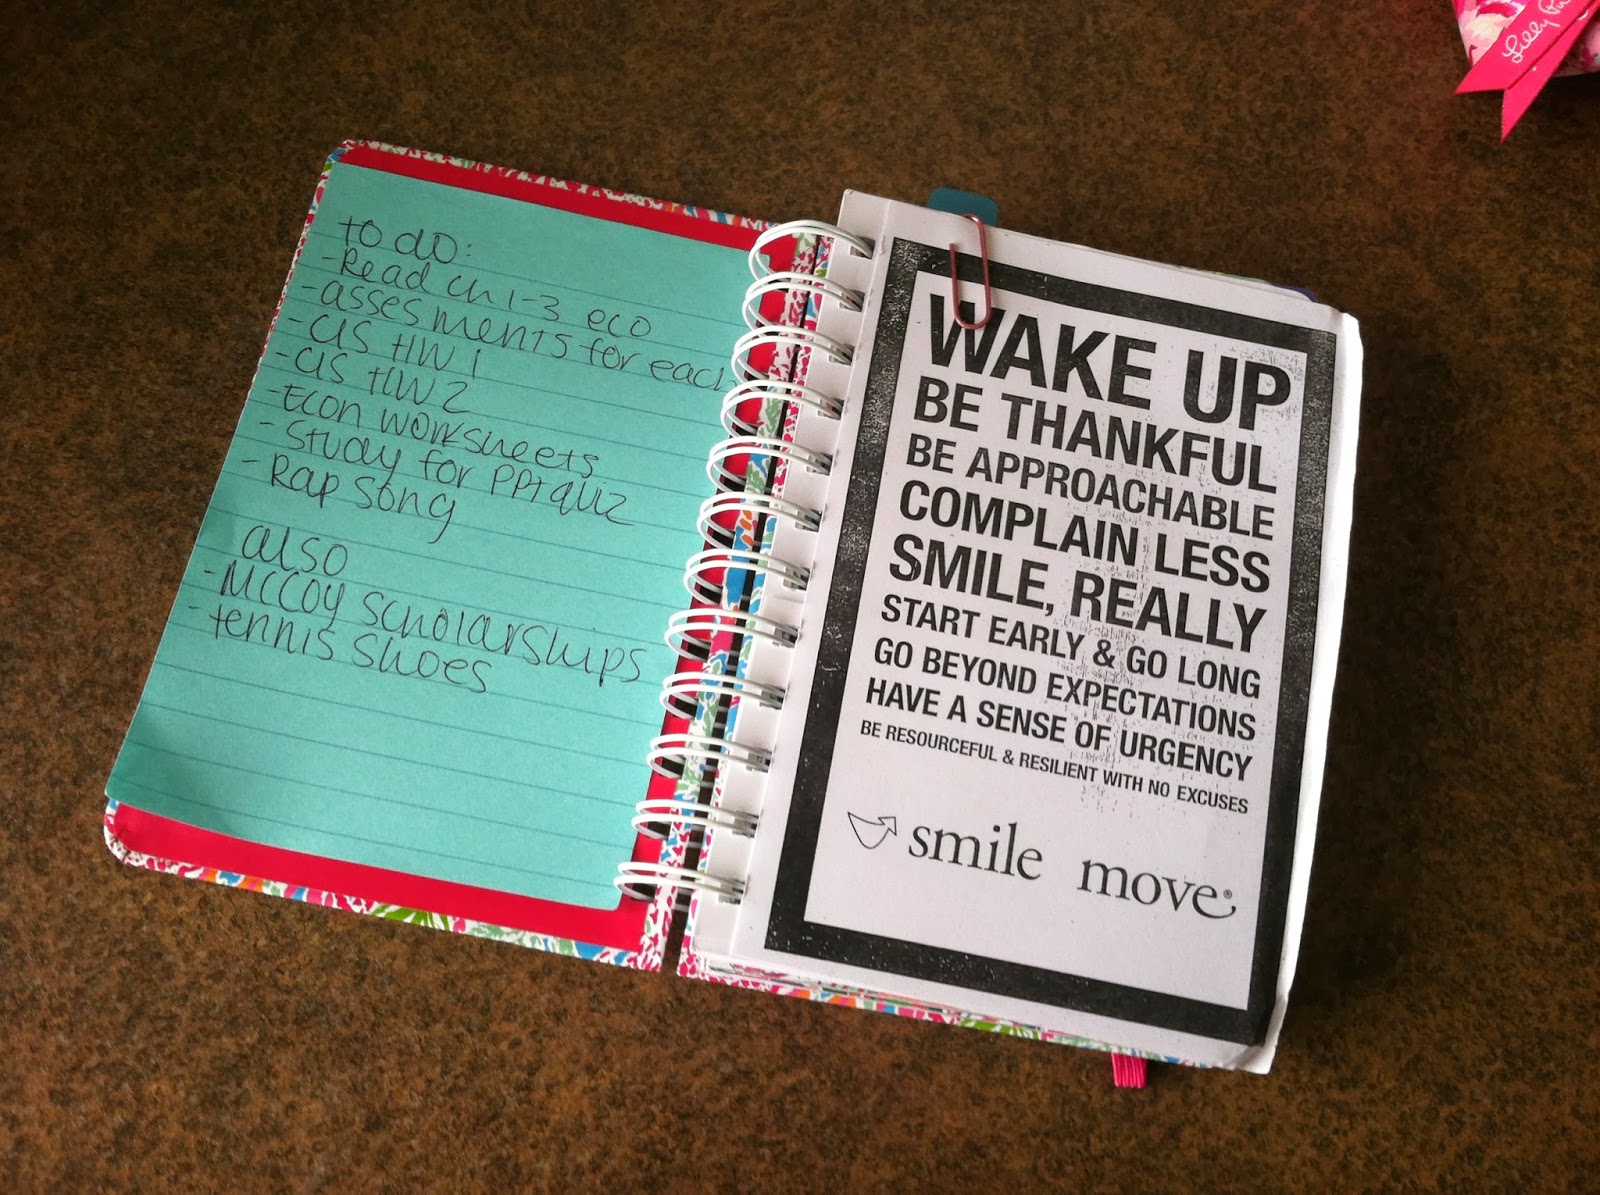 to do:
- Read ch 1-3 eco
- assesments for each
- CIS HW 1
- CIS HW 2
- Econ worksheets
- Study for PPT quiz
- Rap Song
also
- McCoy Scholarships
- tennis shoes
WAKE UP
BE THANKFUL
BE APPROACHABLE
COMPLAIN LESS
SMILE, REALLY
START EARLY & GO LONG
GO BEYOND EXPECTATIONS
HAVE A SENSE OF URGENCY
BE RESOURCEFUL & RESILIENT WITH NO EXCUSES
smile move®
Lilly